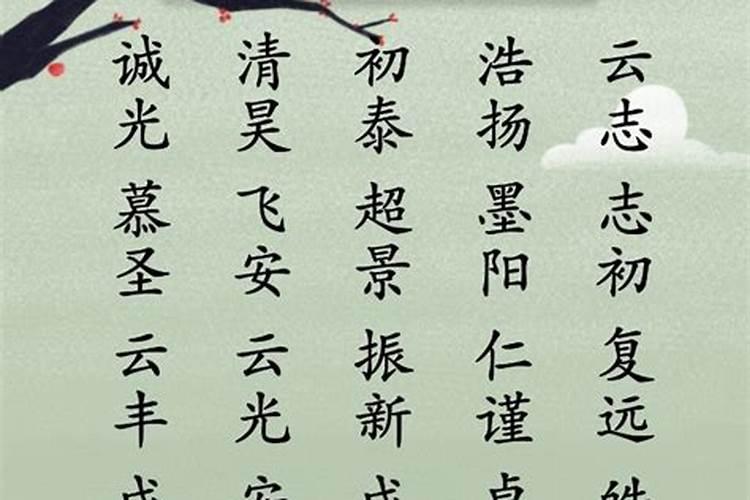 诚光 清昊 初泰 浩扬 云志
慕圣 飞安 超景 墨阳 志初
云丰 云光 振新 仁谨 复远